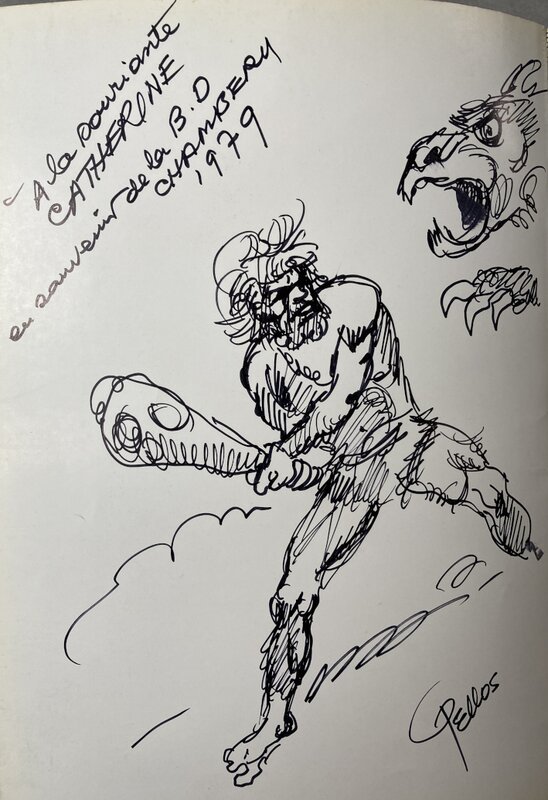 A la souriante
CATHERINE
en souvenir de la B.D
CHAMBERY
1979
Pellos